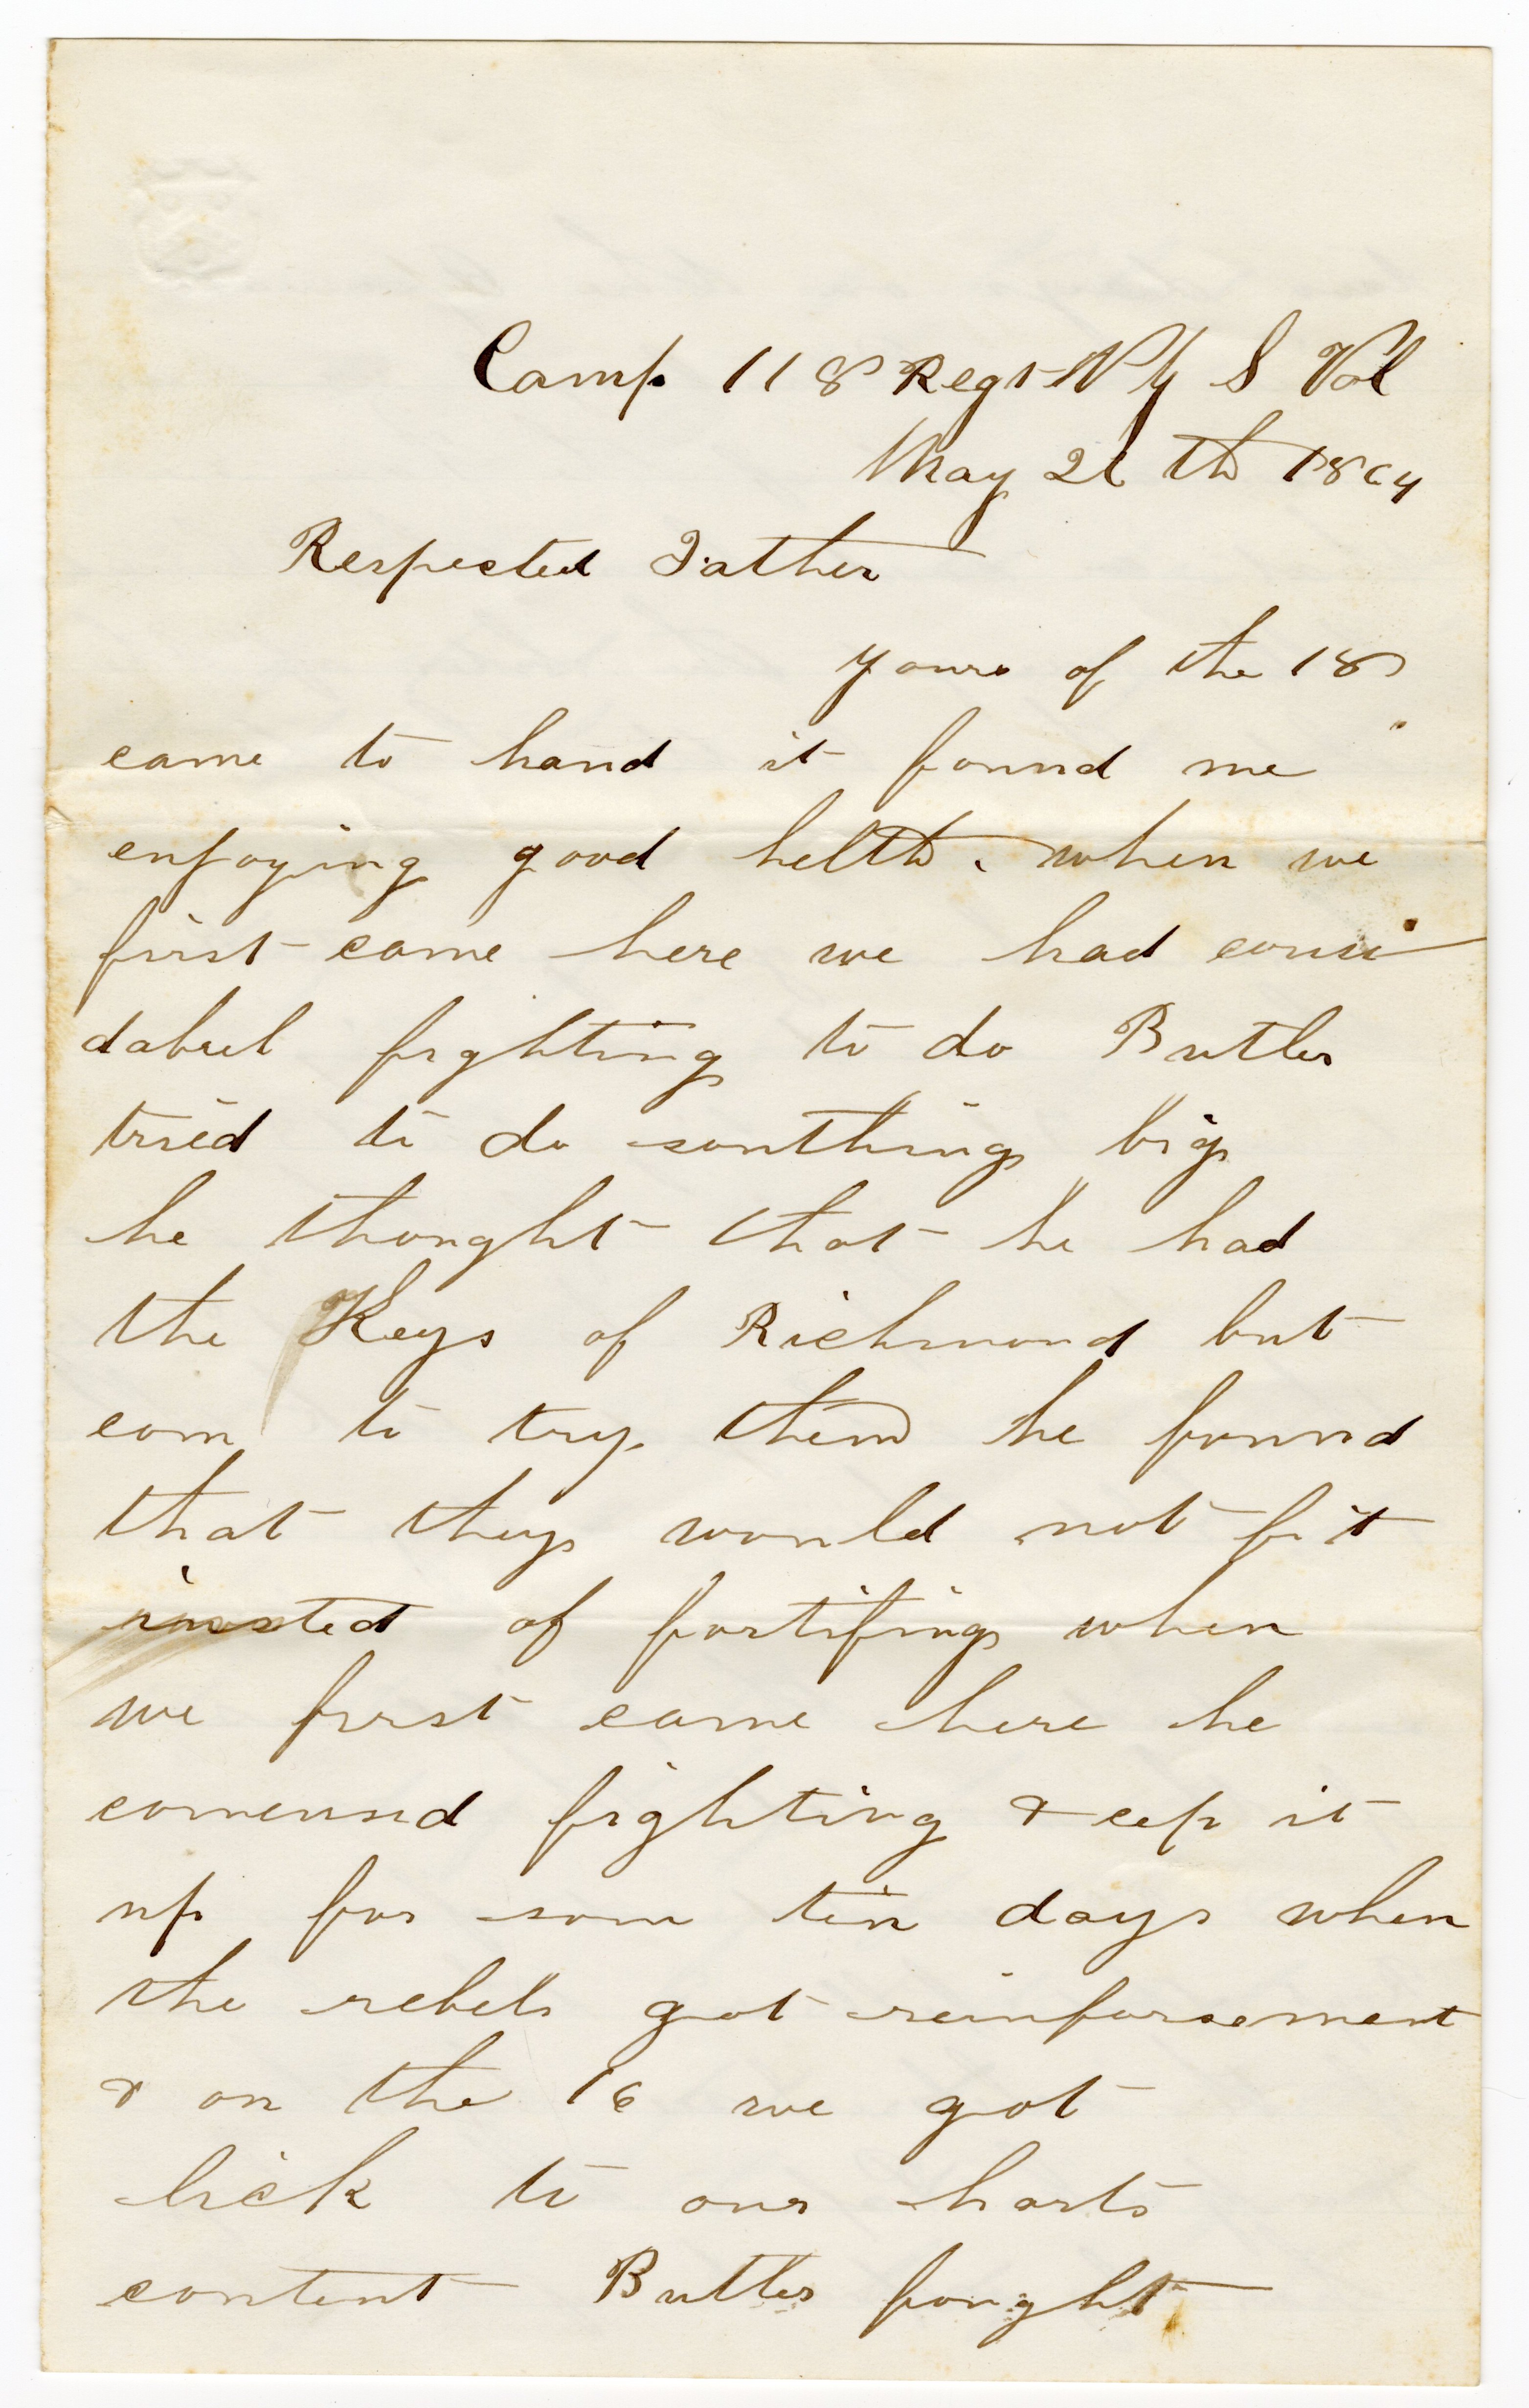 Camp 118 Regt N Y S Vol
May 26 th 1864
Respected Father
yours of the 18
came to hand it found me
enjoying good helth. when we
first came here we had consi
dabul fighting to do Butler
tried to do somthing big
he thought that he had
the Keys of Richmond but
com to try them he found
that they would not fit
insted of fortifing when
we first came here he
comensed fighting & cep it
up for som ten days when
the rebels got reinforsement
& on the 16 we got
lick to our harts
content Butler fought